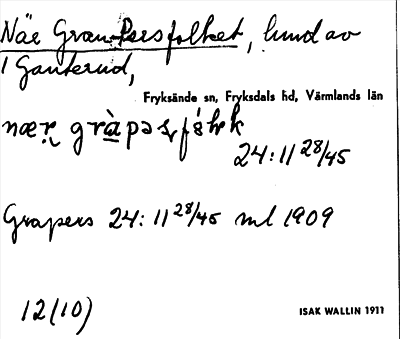 När Gran-Persfolket, lund av
i Ganterud,
Fryksände sn, Fryksdals hd, Värmlands län
24:11 28/45
Grapers 24:11 28/45 ml 1909
12(10)
ISAK WALLIN 1911